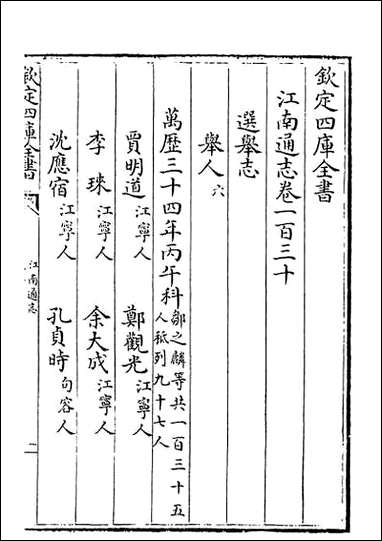 欽定四庫全書
江南通志卷一百三十
選舉志
舉人六
萬歷三十四年丙午科鄒之麟等共一百三十五人秪列九十七人
賈明道江寧人 鄭觀光江寧人
李珠江寧人 余大成江寧人
沈應宿江寧人 孔貞時句容人
欽定四庫全書 江南通志